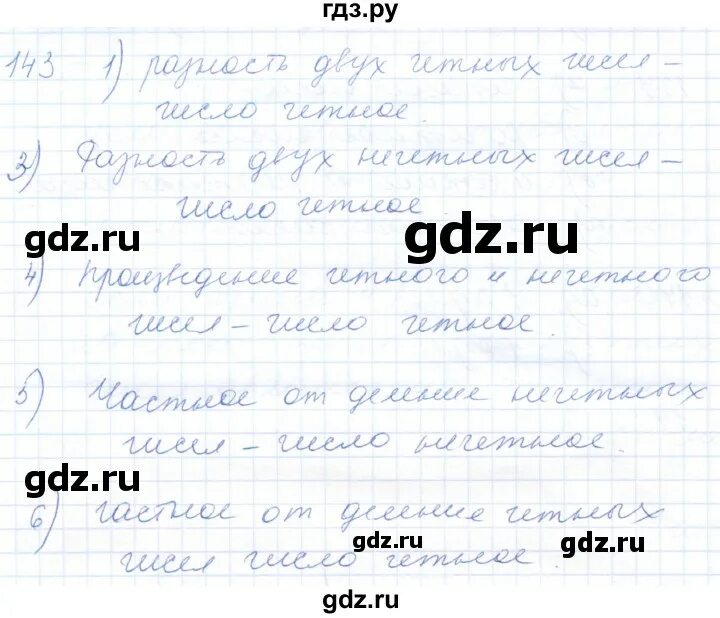 гдз.ру
143 1) разность двух четных чисел –
число четное.
3) Разность двух нечетных чисел –
число четное
gdz.ru gdz.ru
4) Произведение четного и нечетного
чисел – число четное.
5) Частное от деление нечетных
чисел – число нечетное.
gdz.ru
6) частное от деление четных
gdz.ru gdz.ru
чисел число четное.
gdz.ru